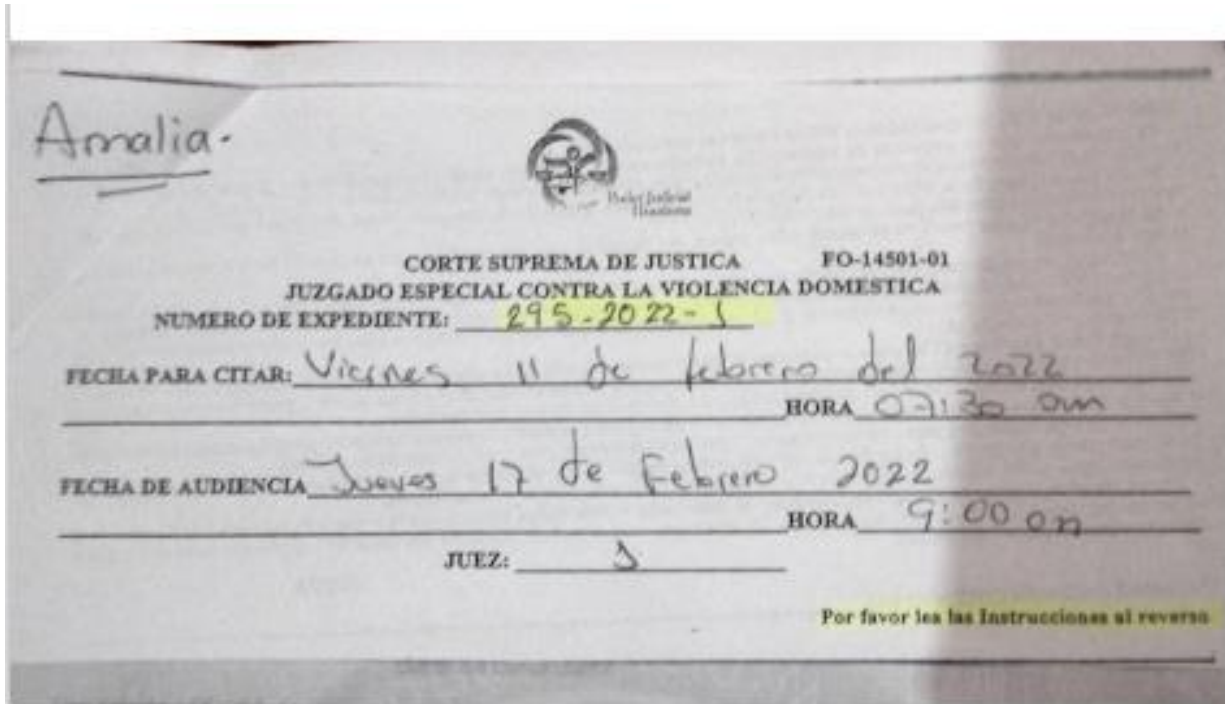 Amalia.
Poder Judicial
Honduras
CORTE SUPREMA DE JUSTICA FO-14501-01
JUZGADO ESPECIAL CONTRA LA VIOLENCIA DOMESTICA
NUMERO DE EXPEDIENTE: 295-2022-1
FECHA PARA CITAR: Viernes 11 de febrero del 2022
HORA 07:30 am
FECHA DE AUDIENCIA Jueves 17 de Febrero 2022
HORA 9:00 am
JUEZ: 1
Por favor lea las Instrucciones al reverso